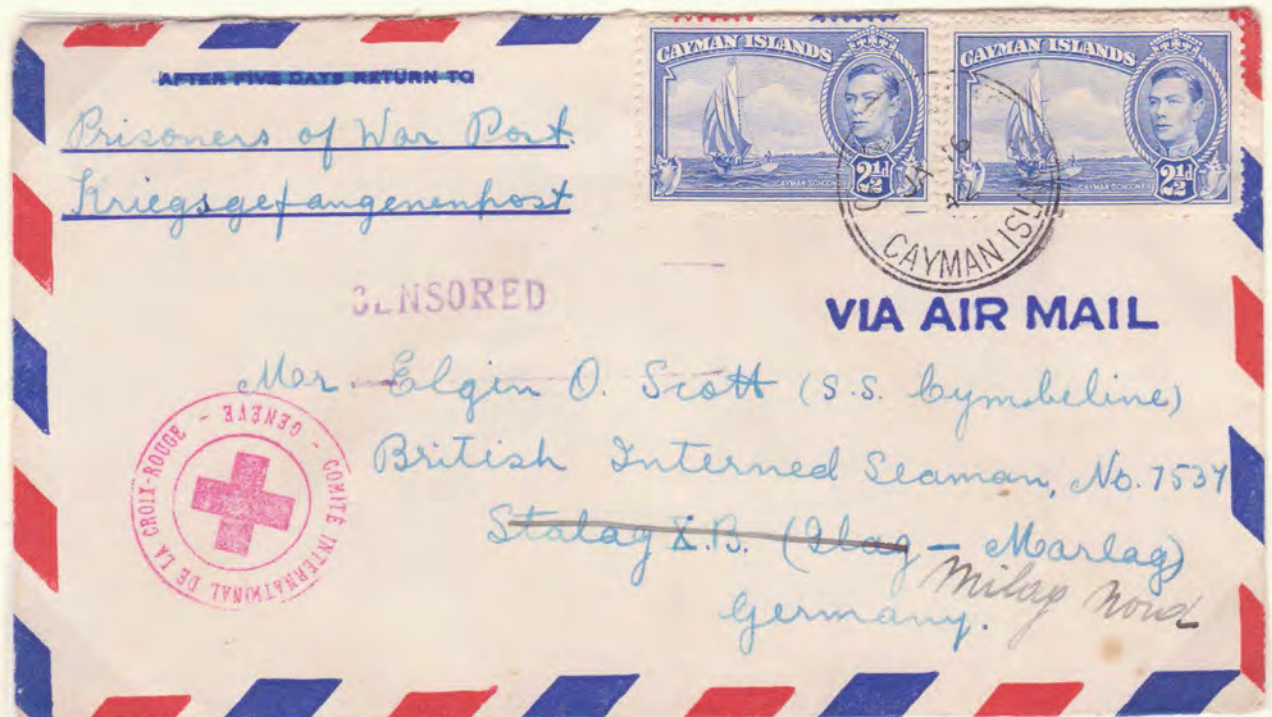 AFTER FIVE DAYS RETURN TO
Prisoners of War Post
Kriegsgefangenenpost
CAYMAN ISLANDS
CAYMAN SCHOONER
2½d
CAYMAN ISLANDS
CAYMAN SCHOONER
2½d
JA 6
42
CAYMAN ISLAN
CENSORED
VIA AIR MAIL
Mr. Elgin O. Scott (S.S. Cymbeline)
British Interned Seaman, No. 7537
Stalag X.B. (Ilag - Marlag)
Milag Nord
Germany.
COMITÉ INTERNATIONAL DE LA CROIX-ROUGE - GENÈVE -